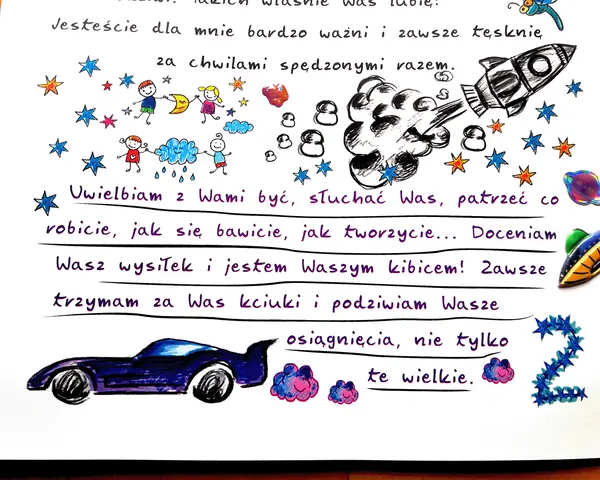 takich właśnie Was lubię!
Jesteście dla mnie bardzo ważni i zawsze tęsknię
za chwilami spędzonymi razem.
Uwielbiam z Wami być, słuchać Was, patrzeć co
robicie, jak się bawicie, jak tworzycie... Doceniam
Wasz wysiłek i jestem Waszym kibicem! Zawsze
trzymam za Was kciuki i podziwiam Wasze
osiągnięcia, nie tylko
te wielkie.
2